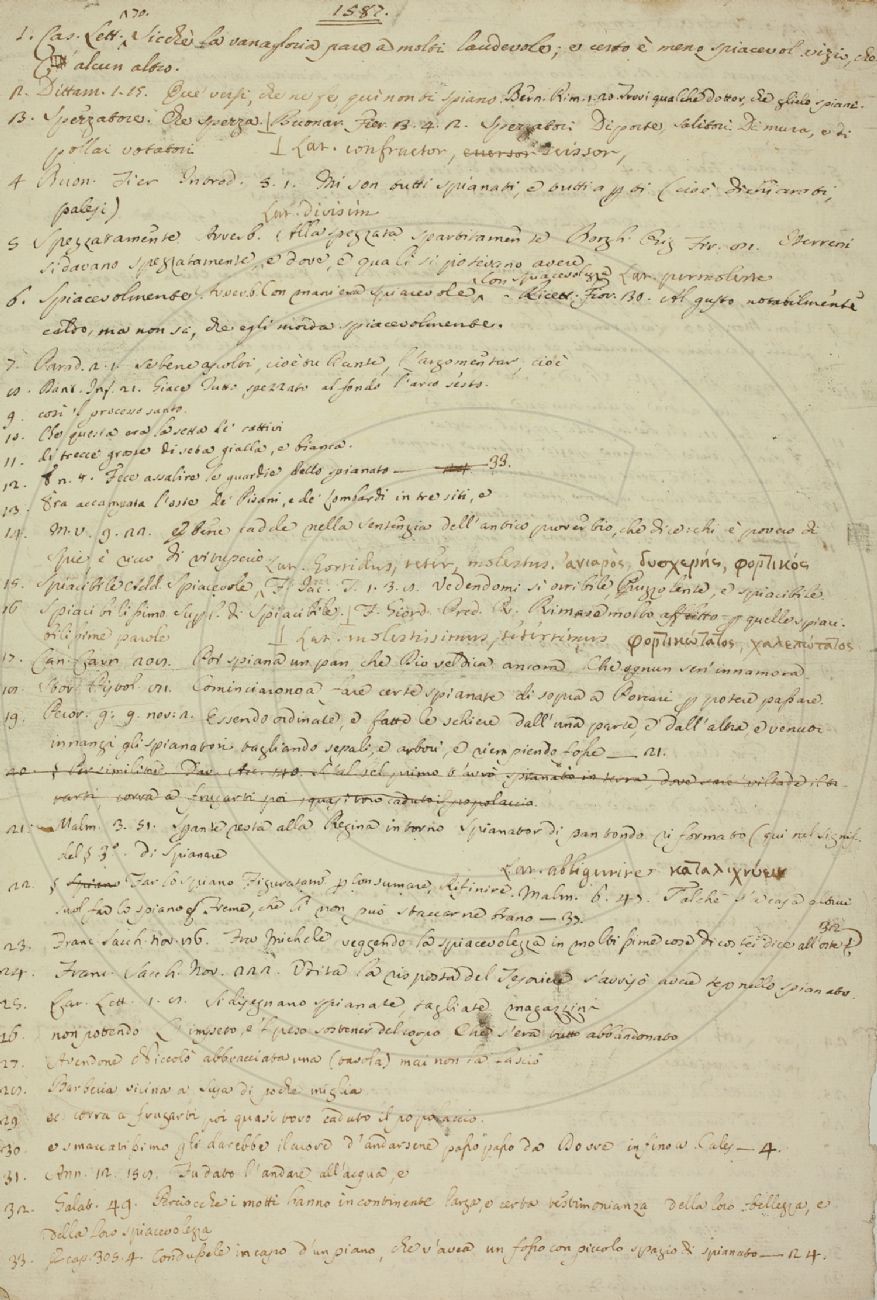 1587.
1. Cas. Lett. 70. Sicchè la vanagloria pare a molti laudevole; e certo è meno spiacevol vizio, che
alcun altro.
2. Dittam. 1. 15. Que' versi, che ne fe qui non ti spiano. Bern. Rim. 1. 20. Trovi qualche dottor, che glielo spiani.
3. Spezzatore. Che spezza. Buonar. Fier. 3. 4. 2. Spezzatori Di porte, salitori Di mura, e di
pollai votatori Lat. confructor, eversor scissor,
4 Buon. Fier Introd. 5. 1. Mi son tutti spianati, e tutti aperti (cioè dichiarati,
palesi) Lat. divisim
5 Spezzatamente. Avverb. Alla spezzata spartitamente Borgh. Orig. Fir. I terreni
si davano spezzatamente, e dove, e quali si potevano avere
con spiacevolezza Lat. permoleste
6. Spiacevolmente. Avverb. Con maniera spiacevole, Ricett. Fior. 30. Al gusto notabilmente
caldo, ma non sì, che egli morda spiacevolmente.
7. Parad. 2. 1. Se bene ascolti, cioè tu Dante, l'argomentar, cioè
8. Dant. Inf. 21. Giace Tutto spezzato al fondo l'arco sesto.
9. così 'l processo santo.
10. Che questa era la setta de' cattivi
11. di trecce grosse di seta gialla, e bianca.
12. E n. 4. Fece assalire le guardie dello spianato — 33.
13. Era accampata l'oste de' Pisani, e de' Lombardi in tre siti, e
14. M. V. 9. 22. E bene cadde nella sentenzia dell'antico proverbio, che dice, chi è povero di
fede, è ricco di vituperio Lat. horridus, teter, molestus. ἀνιαρὸς, δυσχερής, φορτικός
15. Spiacibile Add. Spiacevole. Fr. Jac. T. 1. 3. 8. Vedendomi sì orribile, Puzzolente, e spiacibile
16 Spiacibilissimo Superl. di Spiacibile. F. Giord. Pred. R. Rimase molto afflitto per quelle spiaci-
bilissime parole Lat. molestissimus, teterrimus φορτικώτατος, χαλεπώτατος
17. Can. Carn. 208. Poi spiana un pan, che Dio vel dica ancora, Che ognun sen' innamora
18. Stor. Pistol. 81. Cominciarono a fare certe spianate di sopra a Porcari per potere passare.
19. Pecor. g. 9. nov. 2. Essendo ordinate, e fatte le schiere dall'una parte, e dall'altra, e venuti
innanzi gli spianatori, tagliando sepali, e arbori, e riempiendo fosse — 21.
20. § Per similit. Dav. Acc. 140. E al bel primo t'avrò spianato in terra, dove sarei viltade il ti-
rarti, corra a frugarti poi, quasi toro caduto il popolaccio.
21. Malm. 3. 51. Spante resta alla Regina intorno Spianator di pan tondo riformato (qui nel signif.
del § 3°. di Spianare
Lat. abligurire καταλιχνεύειν
22. § Spiano Far lo spiano Figuratam. per consumare, Rifinire. Malm. 6. 47. Talchè s'e' caso alcun
suol far lo spiano E freme, che lì non può staccarne brano — 33.
23. Franc. Sacch. nov. 86. Fra Michele veggendo la spiacevolezza in moltissime cose di costei dice all'oste 32
24. Franc. Sacch. Nov. 222. Udita la risposta del Tesoriere s'avvisò avere teso nello spianato.
25. Car. Lett. 1. 8. Si disegnano spianate, tagliate magazzini
26 non potendo L'impeto, e 'l peso sostener del corpo Che s'era tutto abbandonato
27. Avendone Niccolò abbracciata una (tavola) mai non la lasciò
28. Barberia vicina a Susa di poche miglia
29 e corra a frugarti poi quasi toro caduto il popolaccio.
30 e smaccatissimo gli darebbe il cuore d'andarsene passo passo da Bovre infino a Cales — 4.
31. Ann. 12. 158. Fu dato l'andare all'acqua, e
32. Galat. 49. Perciocchè i motti hanno incontinente larga, e certa testimonianza della loro bellezza, e
della loro spiacevolezza
33. E cap. 305. 4. Condussele in capo d'un piano, che v'avea un fosso con piccolo spazio di spianato — 24.